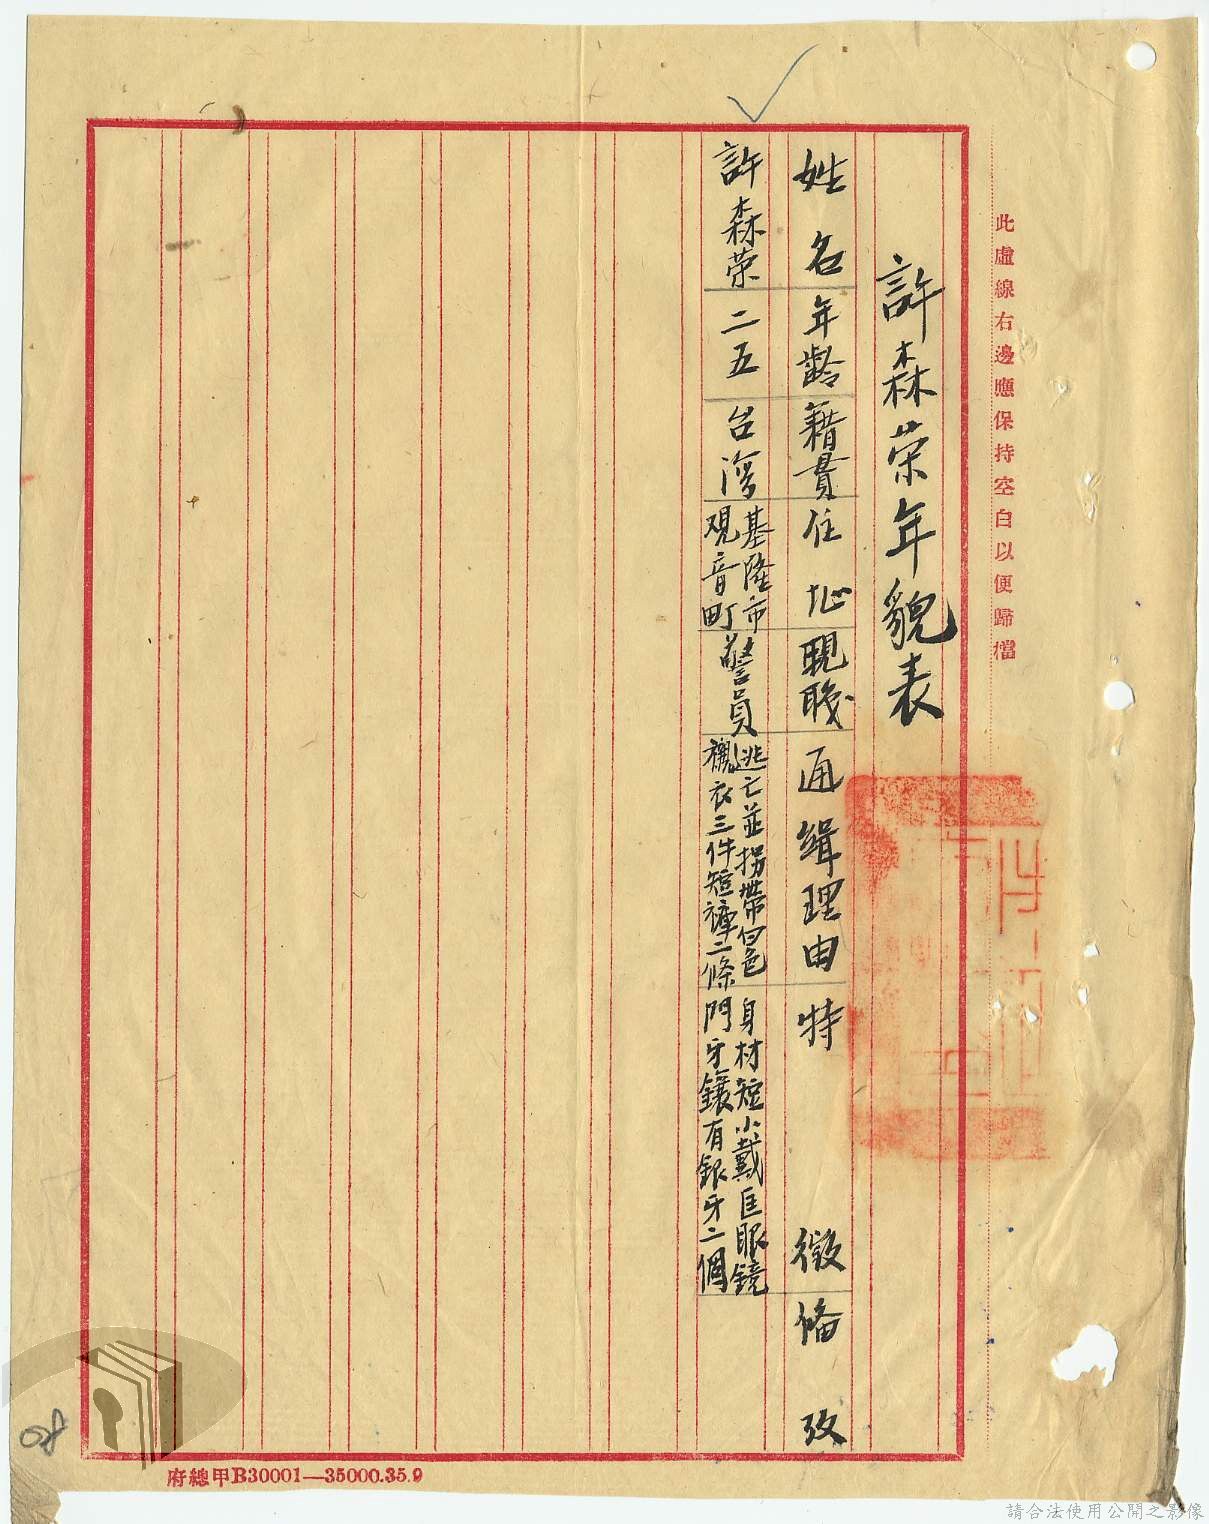 此虛線右邊應保持空白以便歸檔
許森荣年貌表
姓名 年齡 籍貫 住址 現職 通緝理由 特徵 備攷
許森荣 二五 台湾
基隆市
观音町
警員
逃亡並拐帶白色
襯衣三件短褲二條
身材短小戴匡眼鏡
門牙鑲有銀牙二個
府總甲B30001—35000.35.9
請合法使用公開之影像